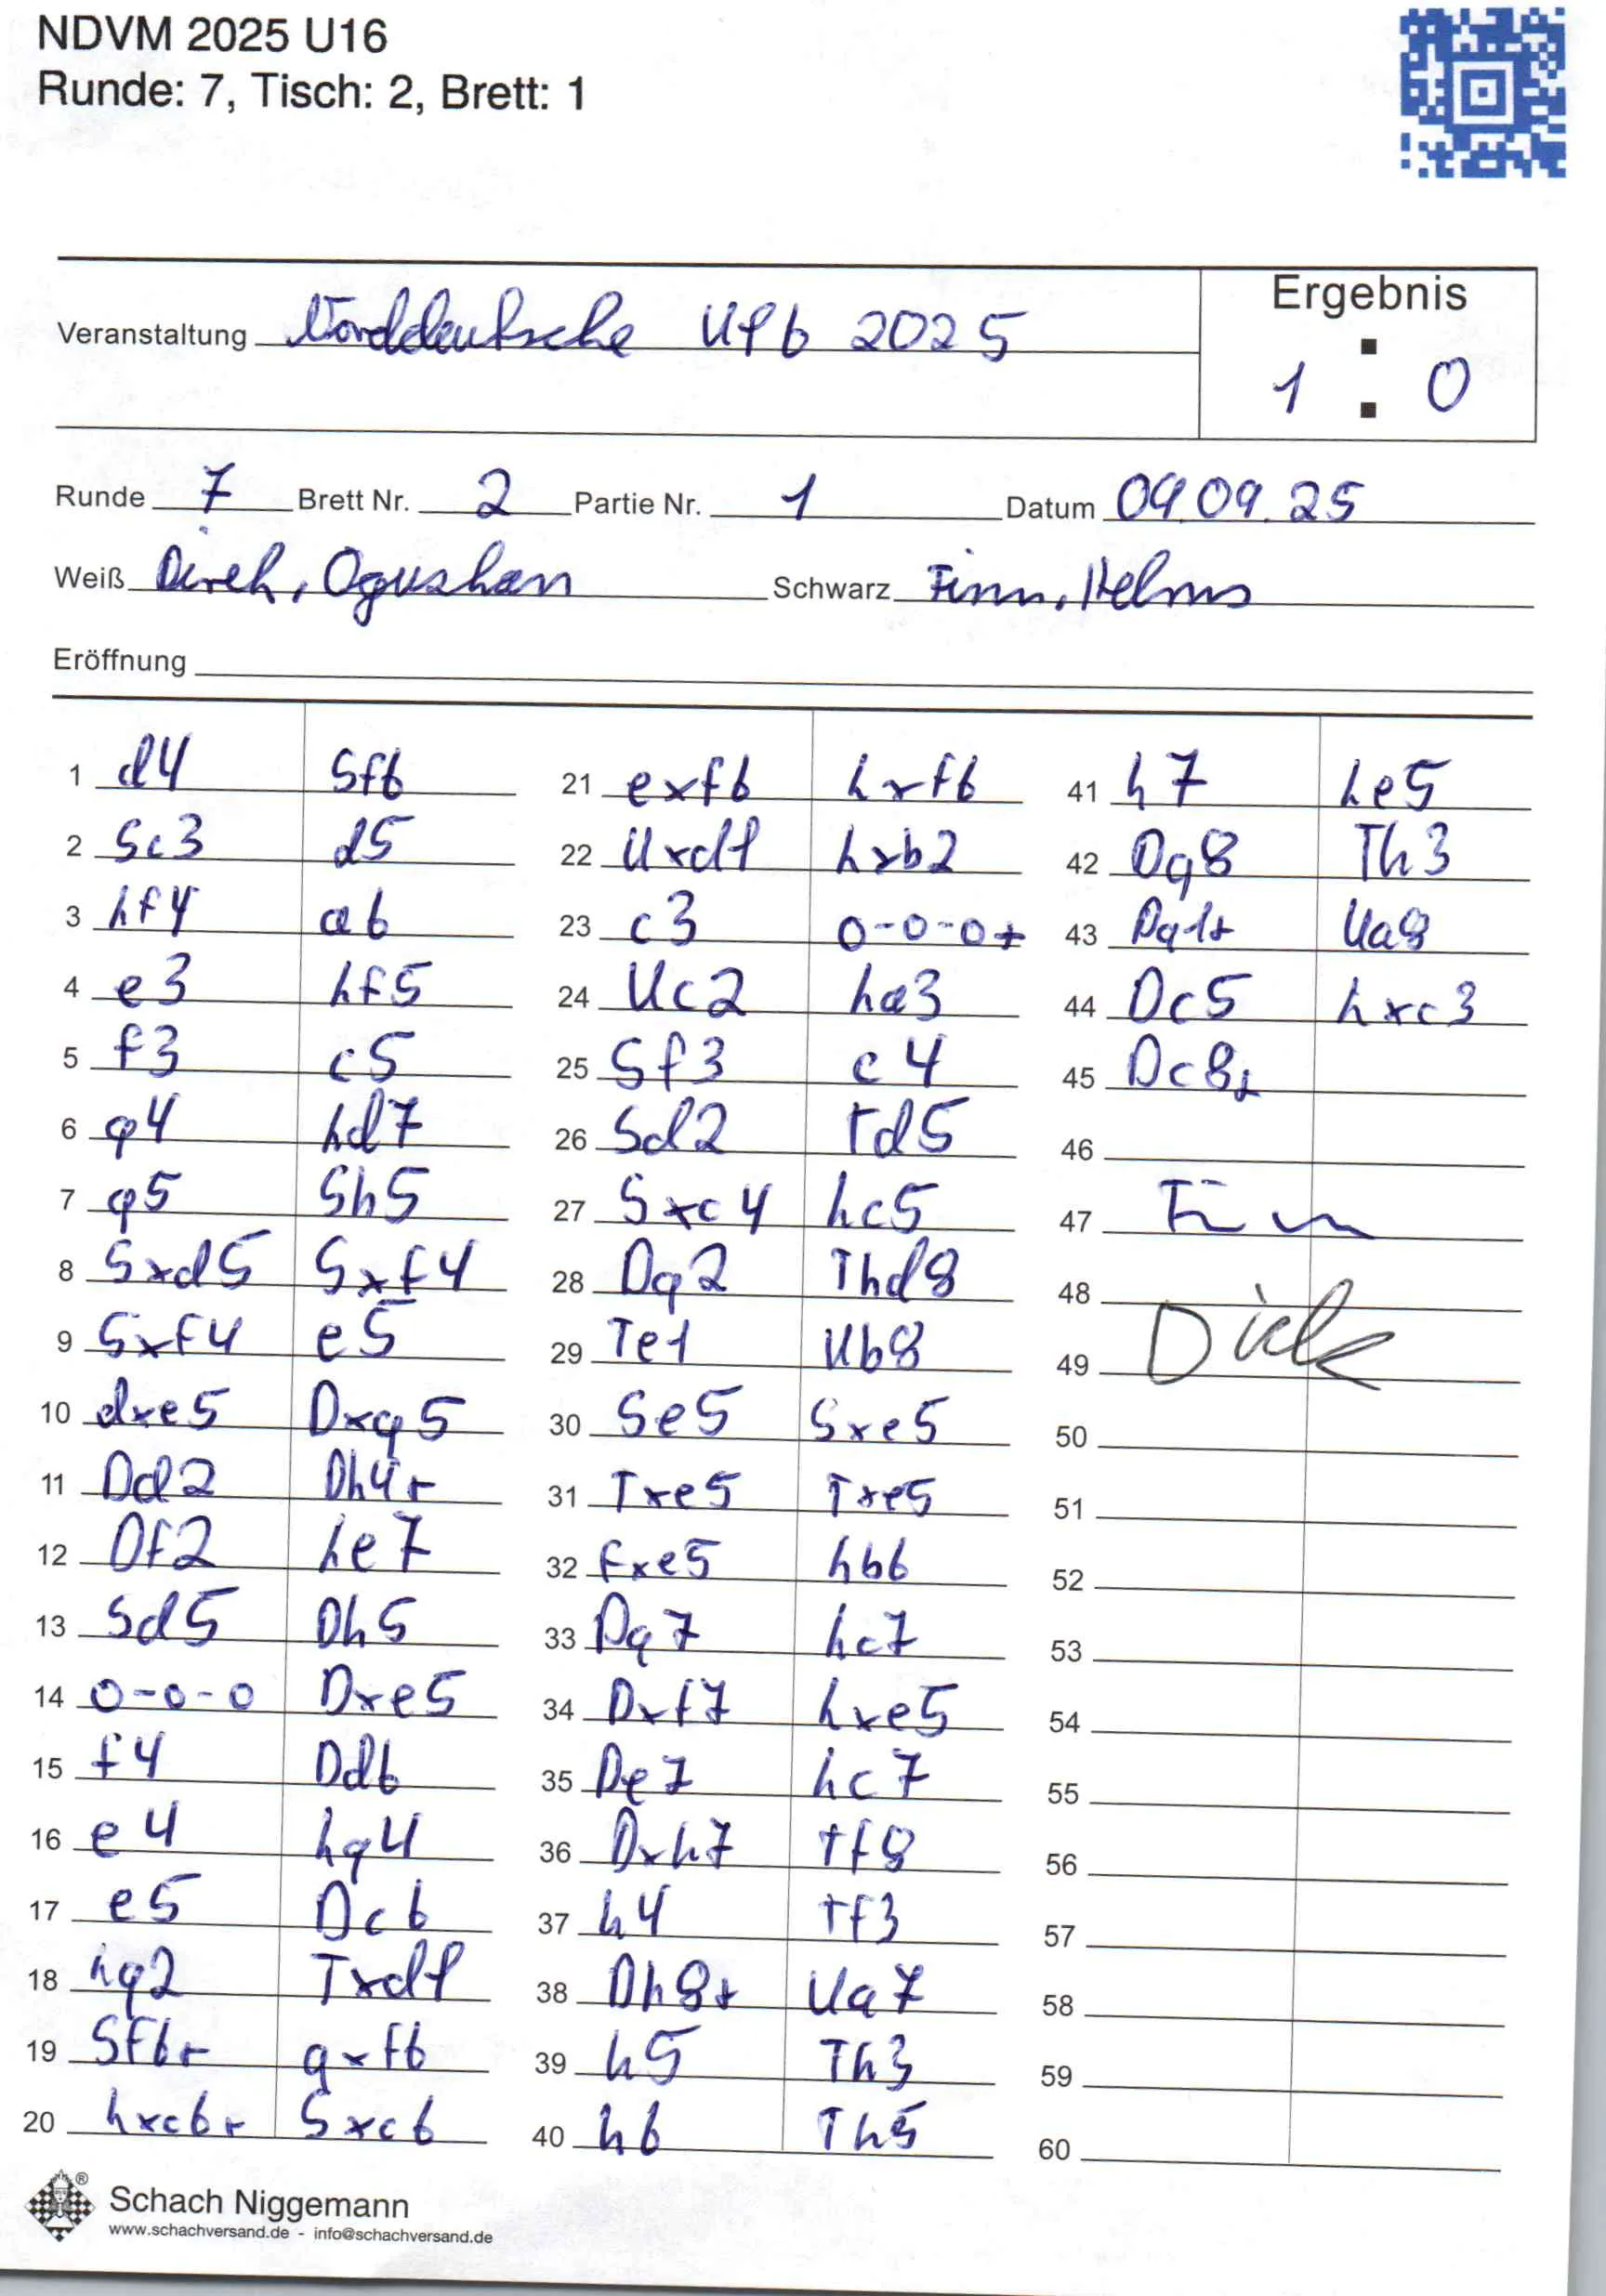 NDVM 2025 U16
Runde: 7, Tisch: 2, Brett: 1
Ergebnis
Veranstaltung Norddeutsche U16 2025
1 : 0
Runde 7 Brett Nr. 2 Partie Nr. 1 Datum 09.09.25
Weiß Direk, Ogushan Schwarz Finn, Helms
Eröffnung
1 d4 Sf6
2 Sc3 d5
3 hf4 a6
4 e3 hf5
5 f3 c5
6 g4 hd7
7 g5 Sh5
8 Sxd5 Sxf4
9 Sxf4 e5
10 dxe5 Dxg5
11 Dd2 Dh4+
12 Df2 he7
13 Sd5 Dh5
14 0-0-0 Dxe5
15 f4 Dd6
16 e4 hg4
17 e5 Dc6
18 hg2 Txd1
19 Sf6+ gxf6
20 hxc6+ Sxc6
21 exf6 hxf6
22 Uxd1 hxb2
23 c3 0-0-0+
24 Uc2 ha3
25 Sf3 c4
26 Sd2 Td5
27 Sxc4 hc5
28 Dg2 Thd8
29 Te1 Ub8
30 Se5 Sxe5
31 Txe5 Txe5
32 fxe5 hb6
33 Dg7 hc7
34 Dxf7 hxe5
35 De7 hc7
36 Dxh7 Tf8
37 h4 Tf3
38 Dh8+ Ua7
39 h5 Th3
40 h6 Th5
41 h7 he5
42 Dg8 Th3
43 Dg1+ Ua8
44 Dc5 hxc3
45 Dc8+
46
47 Finn
48
49 Direk
50
51
52
53
54
55
56
57
58
59
60
Schach Niggemann
www.schachversand.de - info@schachversand.de